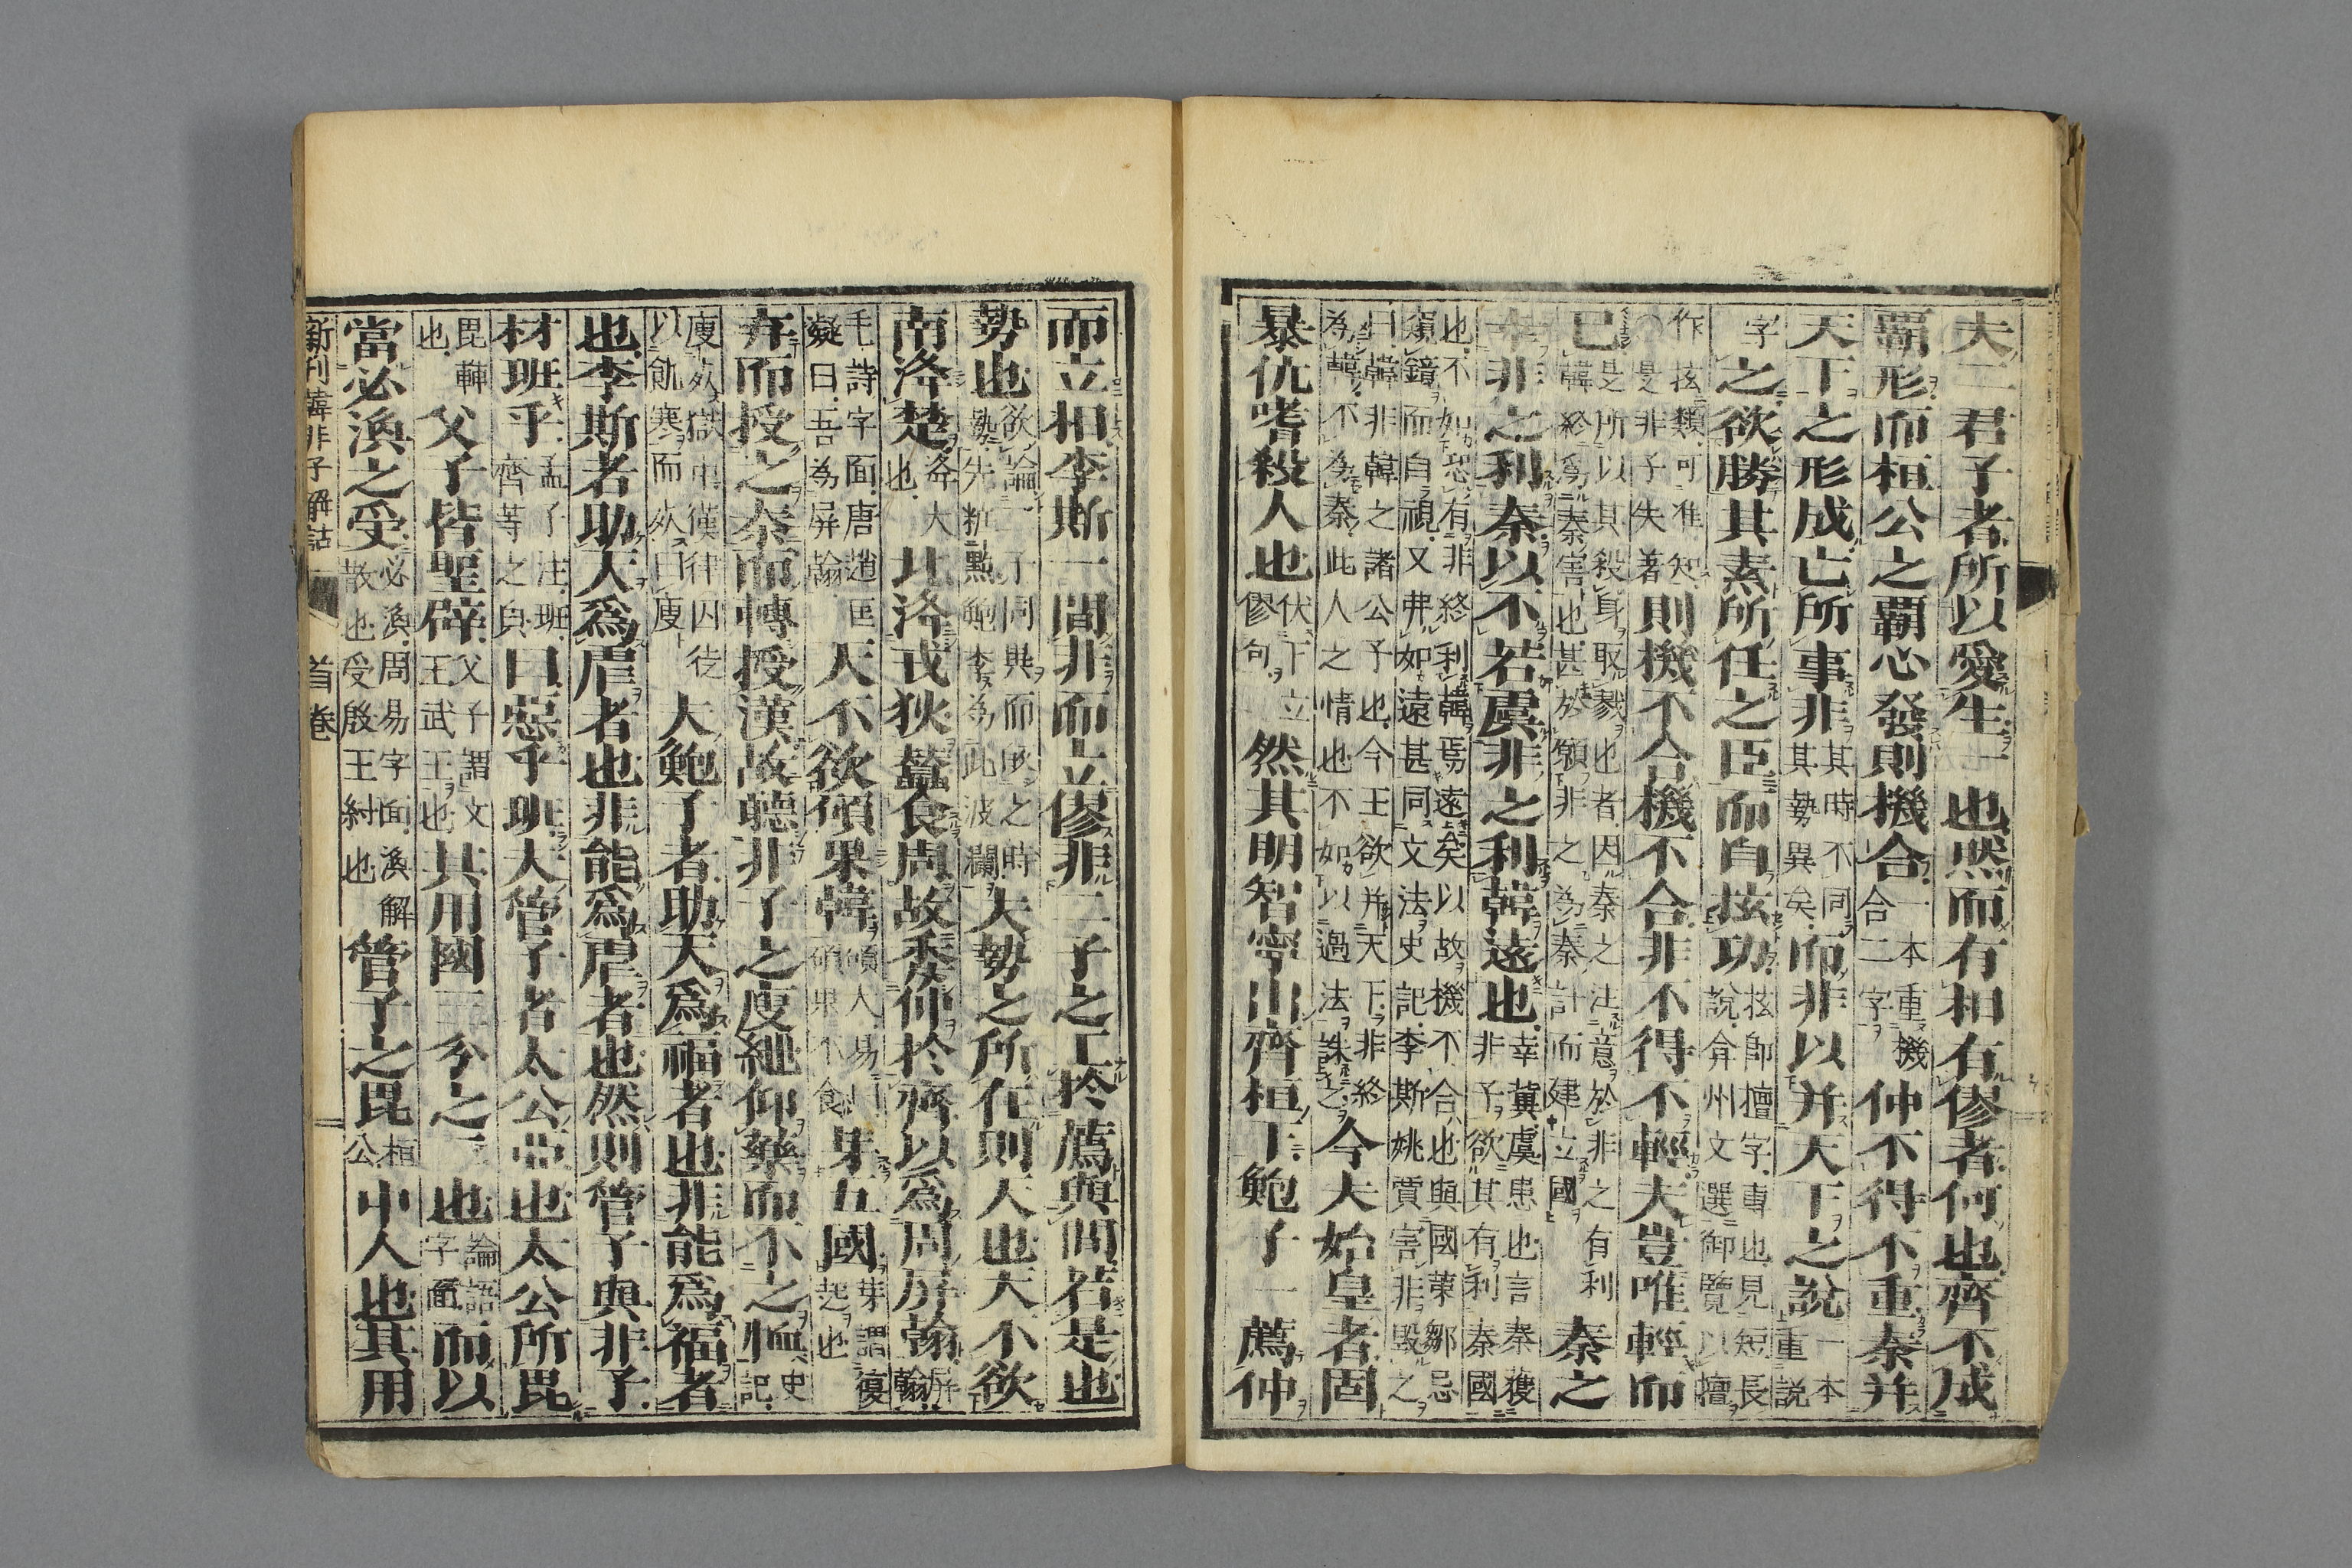 夫二君子者所以愛生一也然而有相有僇者何也齊不成
覇形而桓公之覇心發則機合一本重機合二字仲不得不重秦并
天下之形成亡所事非其時不同其勢異矣而非以并天下之說一本重説
字之欲勝其素所任之臣而自抜功抜郎擅字専也見短長説弇州文選御覽以擅
作抜類可准知○是非子失著則機不合機不合非不得不輕夫豈唯輕而
已是所以其殺身取戮也者因秦之注意於非之有利韓終爲秦害也甚於傾非之為秦計而建立國秦之
幸非之利秦以不若虞非之利韓遠也幸冀虞患也言秦獲非子欲其有利秦國
也不如恐有非終利韓焉遠矣以故機不合也與國策鄒忌窺鏡而自視又弗如遠甚同文法史記李斯姚賈害非毀之
曰韓非韓之諸公子也今王欲并天下非終為韓不為秦此人之情也不如以過法誅之今夫始皇者固
暴伉嗜殺人也伏下立僇句然其明智寧出齊桓下鮑子一薦仲
而立相李斯一間非而立僇非二子之工於薦與間若是也
勢也欲論二子同與而没之時勢先粧點鮑李為此波瀾大勢之所在則天也天不欲
南洚楚洚大也北洚戎狄蠶食周故委仲於齊以為周房翰屏翰
毛詩字面唐趙匡凝曰吾為屏翰天不欲碩果韓碩人易曰碩果不食芽五國芽謂復起也
弃而授之秦而轉授漢故聽非子之廋紲仰藥而不之恤史記
廋死獄中漢律囚徒以飢寒而死曰廋夫鮑子者助天爲福者也非能爲福者
也李斯者助天爲虐者也非能爲虐者也然則管子與非子
材班乎孟子注班齊等之貌曰惡乎班夫管子者太公亞也太公所毘
毘輔也父子皆聖辟父子謂文王武王也其用國三分之二也論語字面而以
當必渙之受必渙周易字面渙解散也受殷王紂也管子之毘桓公中人也其用
新刊韓非子解詁　首卷